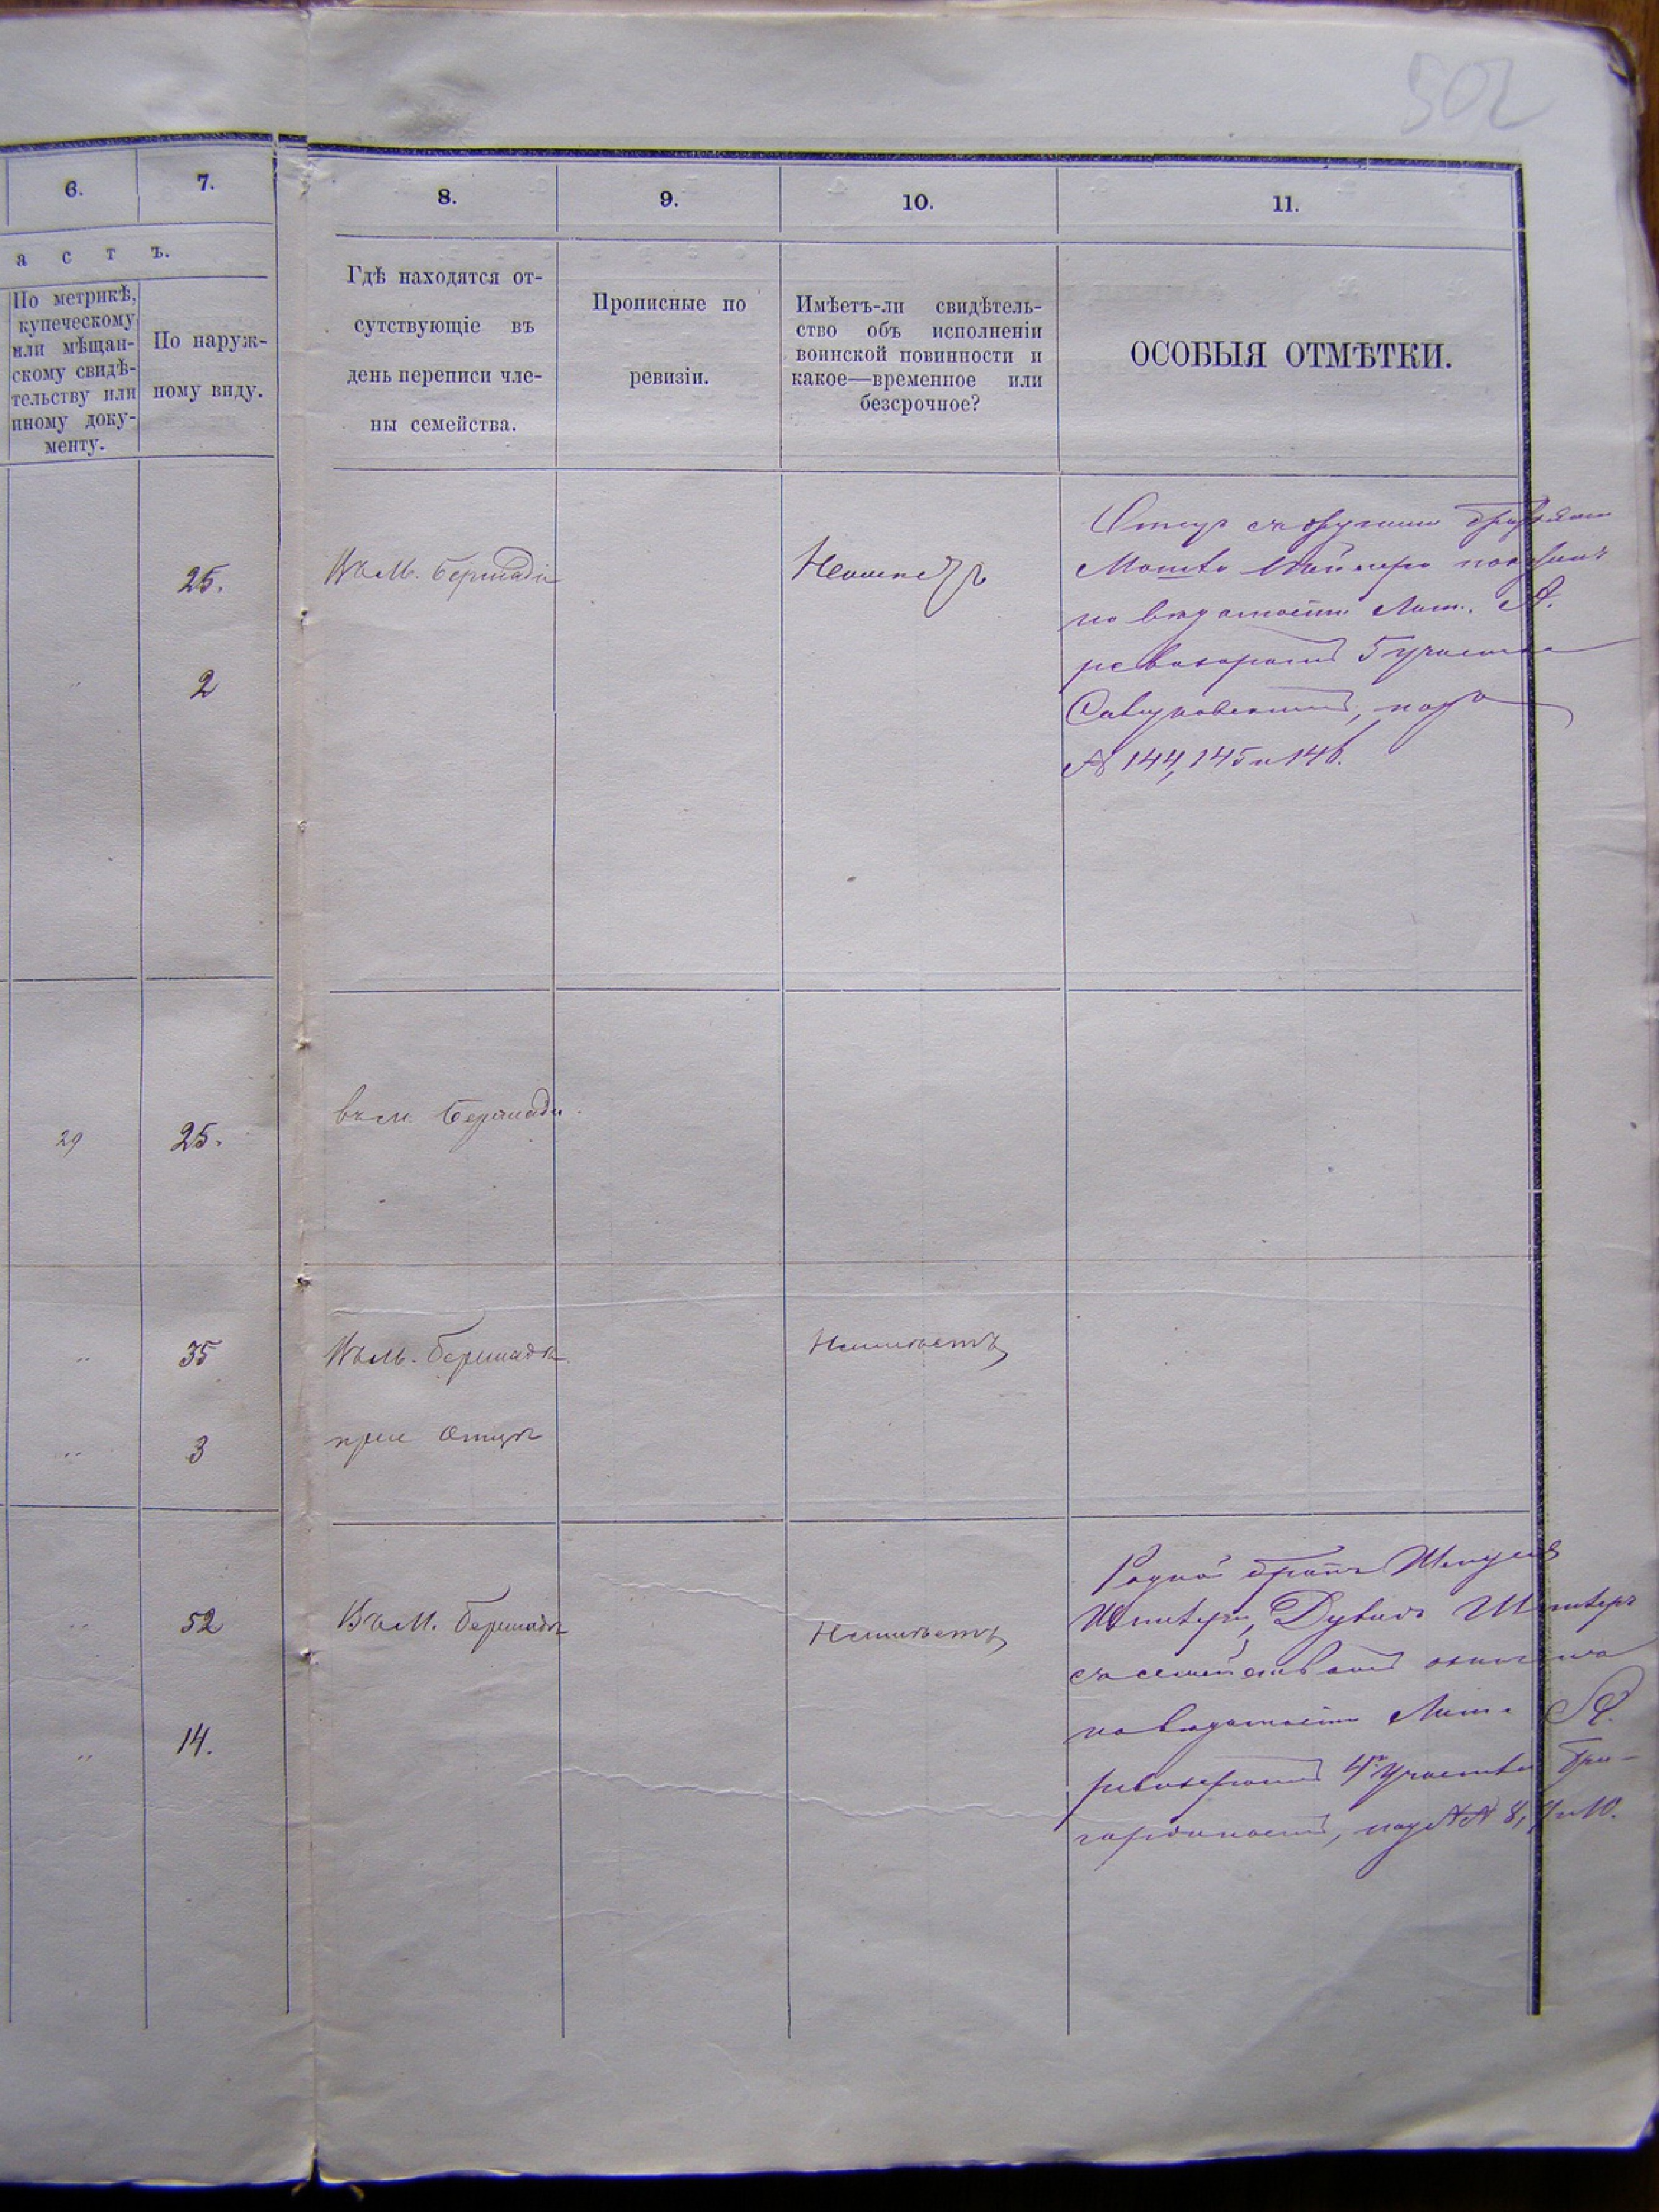 502
6.
7.
8.
9.
10.
11.
а с т ъ.
По метрикѣ,
купеческому
или мѣщан-
скому свидѣ-
тельству или
иному доку-
менту.
По наруж-
ному виду.
Гдѣ находятся от-
сутствующіе въ
день переписи чле-
ны семейства.
Прописные по
ревизіи.
Имѣетъ-ли свидѣтель-
ство объ исполненіи
воинской повинности и
какое—временное или
безсрочное?
ОСОБЫЯ ОТМѢТКИ.
25.
Въ М. Бершади
Отецъ съ другими
Мошко
по вѣдомости Лит. А.
ревизоромъ 5 участка
2
подъ
№ 144, 145 и 146.
29
25.
въ м. Бершади.
35
Въ М. Бершади.
Неимѣетъ
3
при Отцѣ
52
Въ М. Бершади
Неимѣетъ
Родной братъ
Дувидъ
съ семействомъ
по вѣдомости Лит. А.
14.
ревизоромъ 4го участка
подъ №№ 8, 9 и 10.